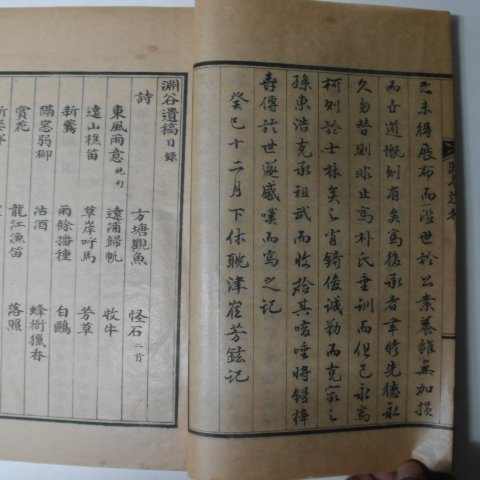 之未得展布而沒世於公素養雖無加損
而古道慨則有矣寫後承者聿修先德永
久勿替則非止寫朴氏垂訓而但已永寫
柯則於士林矣之肖錡俊誠勤而克家之
孫東浩克承祖武而收拾其咳唾將鋟梓
壽傳於世遂感嘆而寫之記
癸巳十二月下休耽津崔芳鉉記
淵谷遺稿目錄
詩
東風雨意 方塘觀魚 怪石二首
遠山樵笛 遠浦歸帆 牧牛
新鶯 草岸呼馬 芳草
隔窓弱柳 雨餘播種 白鷗
賞花 沽酒 蜂衙獵香
龍江漁笛 落照